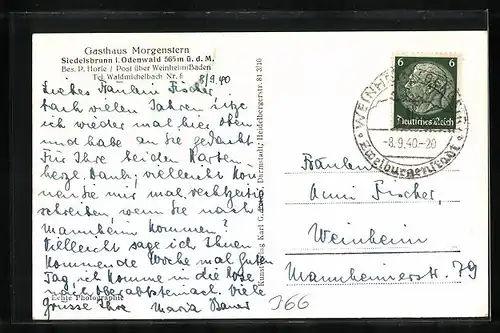 Gasthaus Morgenstern
Siedelsbrunn i. Odenwald 565 m ü. d. M.
Bes. P. Horle / Post über Weinheim/Baden
Tel. Waldmichelbach Nr. 6
8/9.40
Liebes Fräulein Fischer
Nach vielen Jahren sitze
ich wieder mal hier oben
und habe an Sie gedacht
Für Ihre beiden Karten
herzl. Dank; vielleicht kön-
nen Sie mir mal rechtzeitig
schreiben, wenn Sie nach
Mannheim kommen?
Vielleicht sage ich Ihnen
kommende Woche mal Guten
Tag, ich komme in die
nach Oberabtsteinach. Viele
Grüsse Ihre Maria Bauer
Echte Photographie
Kunstverlag Karl Darmstadt, Heidelbergerstr. 81 3/10
6 6
Deutsches Reich
WEINHEIM
-8.9.40-20
Zweiburgenstadt
Fräulein
Anni Fischer,
Weinheim
Mannheimerstr. 79
366